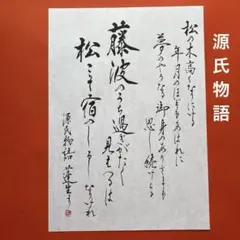 源氏物語
松の木高くなりにける
年月のほどもあはれに
夢のやうなる御身のありさまも
思し続けらる
藤波のうち過ぎがたく
見えつるは
松こそ宿のしるし
なりけれ
源氏物語 蓬生より